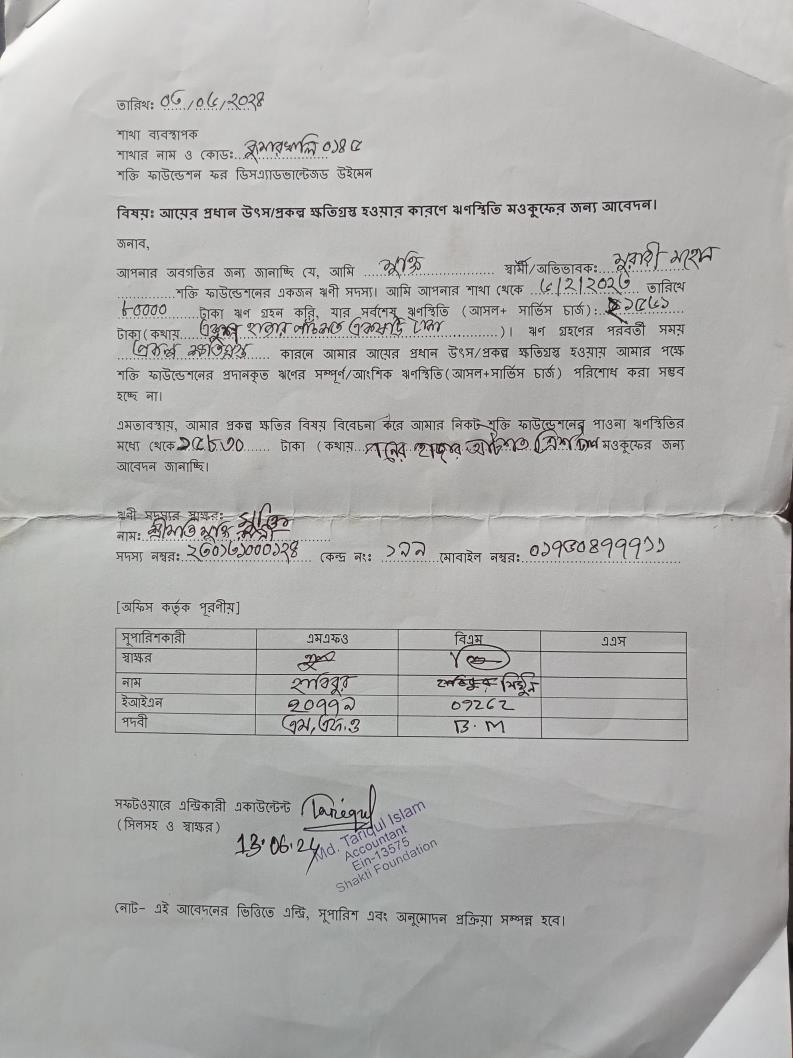 তারিখ: ০৬/০৫/২০২৪
শাখা ব্যবস্থাপক
শাখার নাম ও কোড: কুমারখালি ০১৪৫
শক্তি ফাউন্ডেশন ফর ডিসএ্যাডভান্টেজড উইমেন
বিষয়: আয়ের প্রধান উৎস/প্রকল্প ক্ষতিগ্রস্ত হওয়ার কারণে ঋণস্থিতি মওকুফের জন্য আবেদন।
জনাব,
আপনার অবগতির জন্য জানাচ্ছি যে, আমি স্বামী/অভিভাবক: মুরারী
শক্তি ফাউন্ডেশনের একজন ঋণী সদস্য। আমি আপনার শাখা থেকে ৫/২/২০২৩ তারিখে
৮০০০০ টাকা ঋণ গ্রহন করি, যার সর্বশেষ ঋণস্থিতি (আসল+ সার্ভিস চার্জ):
টাকা(কথায় একুশ হাজার পাঁচশত একষট্টি টাকা )। ঋণ গ্রহণের পরবর্তী সময়
প্রকল্প ক্ষতিগ্রস্থ কারনে আমার আয়ের প্রধান উৎস/প্রকল্প ক্ষতিগ্রস্ত হওয়ায় আমার পক্ষে
শক্তি ফাউন্ডেশনের প্রদানকৃত ঋণের সম্পূর্ণ/আংশিক ঋণস্থিতি(আসল+সার্ভিস চার্জ) পরিশোধ করা সম্ভব
হচ্ছে না।
এমতাবস্থায়, আমার প্রকল্প ক্ষতির বিষয় বিবেচনা করে আমার নিকট শক্তি ফাউন্ডেশনের পাওনা ঋণস্থিতির
মধ্যে থেকে ১৫৮৩০ টাকা (কথায় পনের হাজার আটশত ত্রিশ টাকা মওকুফের জন্য
আবেদন জানাচ্ছি।
ঋনী সদস্যের স্বাক্ষর:
নাম: শ্রীমতি
সদস্য নম্বর: কেন্দ্র নং: ১৯৯ মোবাইল নম্বর: ০১৭৩০৪৭৭৭১১
[অফিস কর্তৃক পূরণীয়]
সুপারিশকারী এমএফও বিএম এএস
স্বাক্ষর
নাম হাবিবুর
ইআইএন ২০৭৭৯ 07262
পদবী এম,এফ,ও B.M
সফটওয়ারে এন্ট্রিকারী একাউন্টেন্ট Tariqul
(সিলসহ ও স্বাক্ষর)
13.06.24
Md. Tariqul Islam
Accountant
Ein-13575
Shakti Foundation
নোট- এই আবেদনের ভিত্তিতে এন্ট্রি, সুপারিশ এবং অনুমোদন প্রক্রিয়া সম্পন্ন হবে।